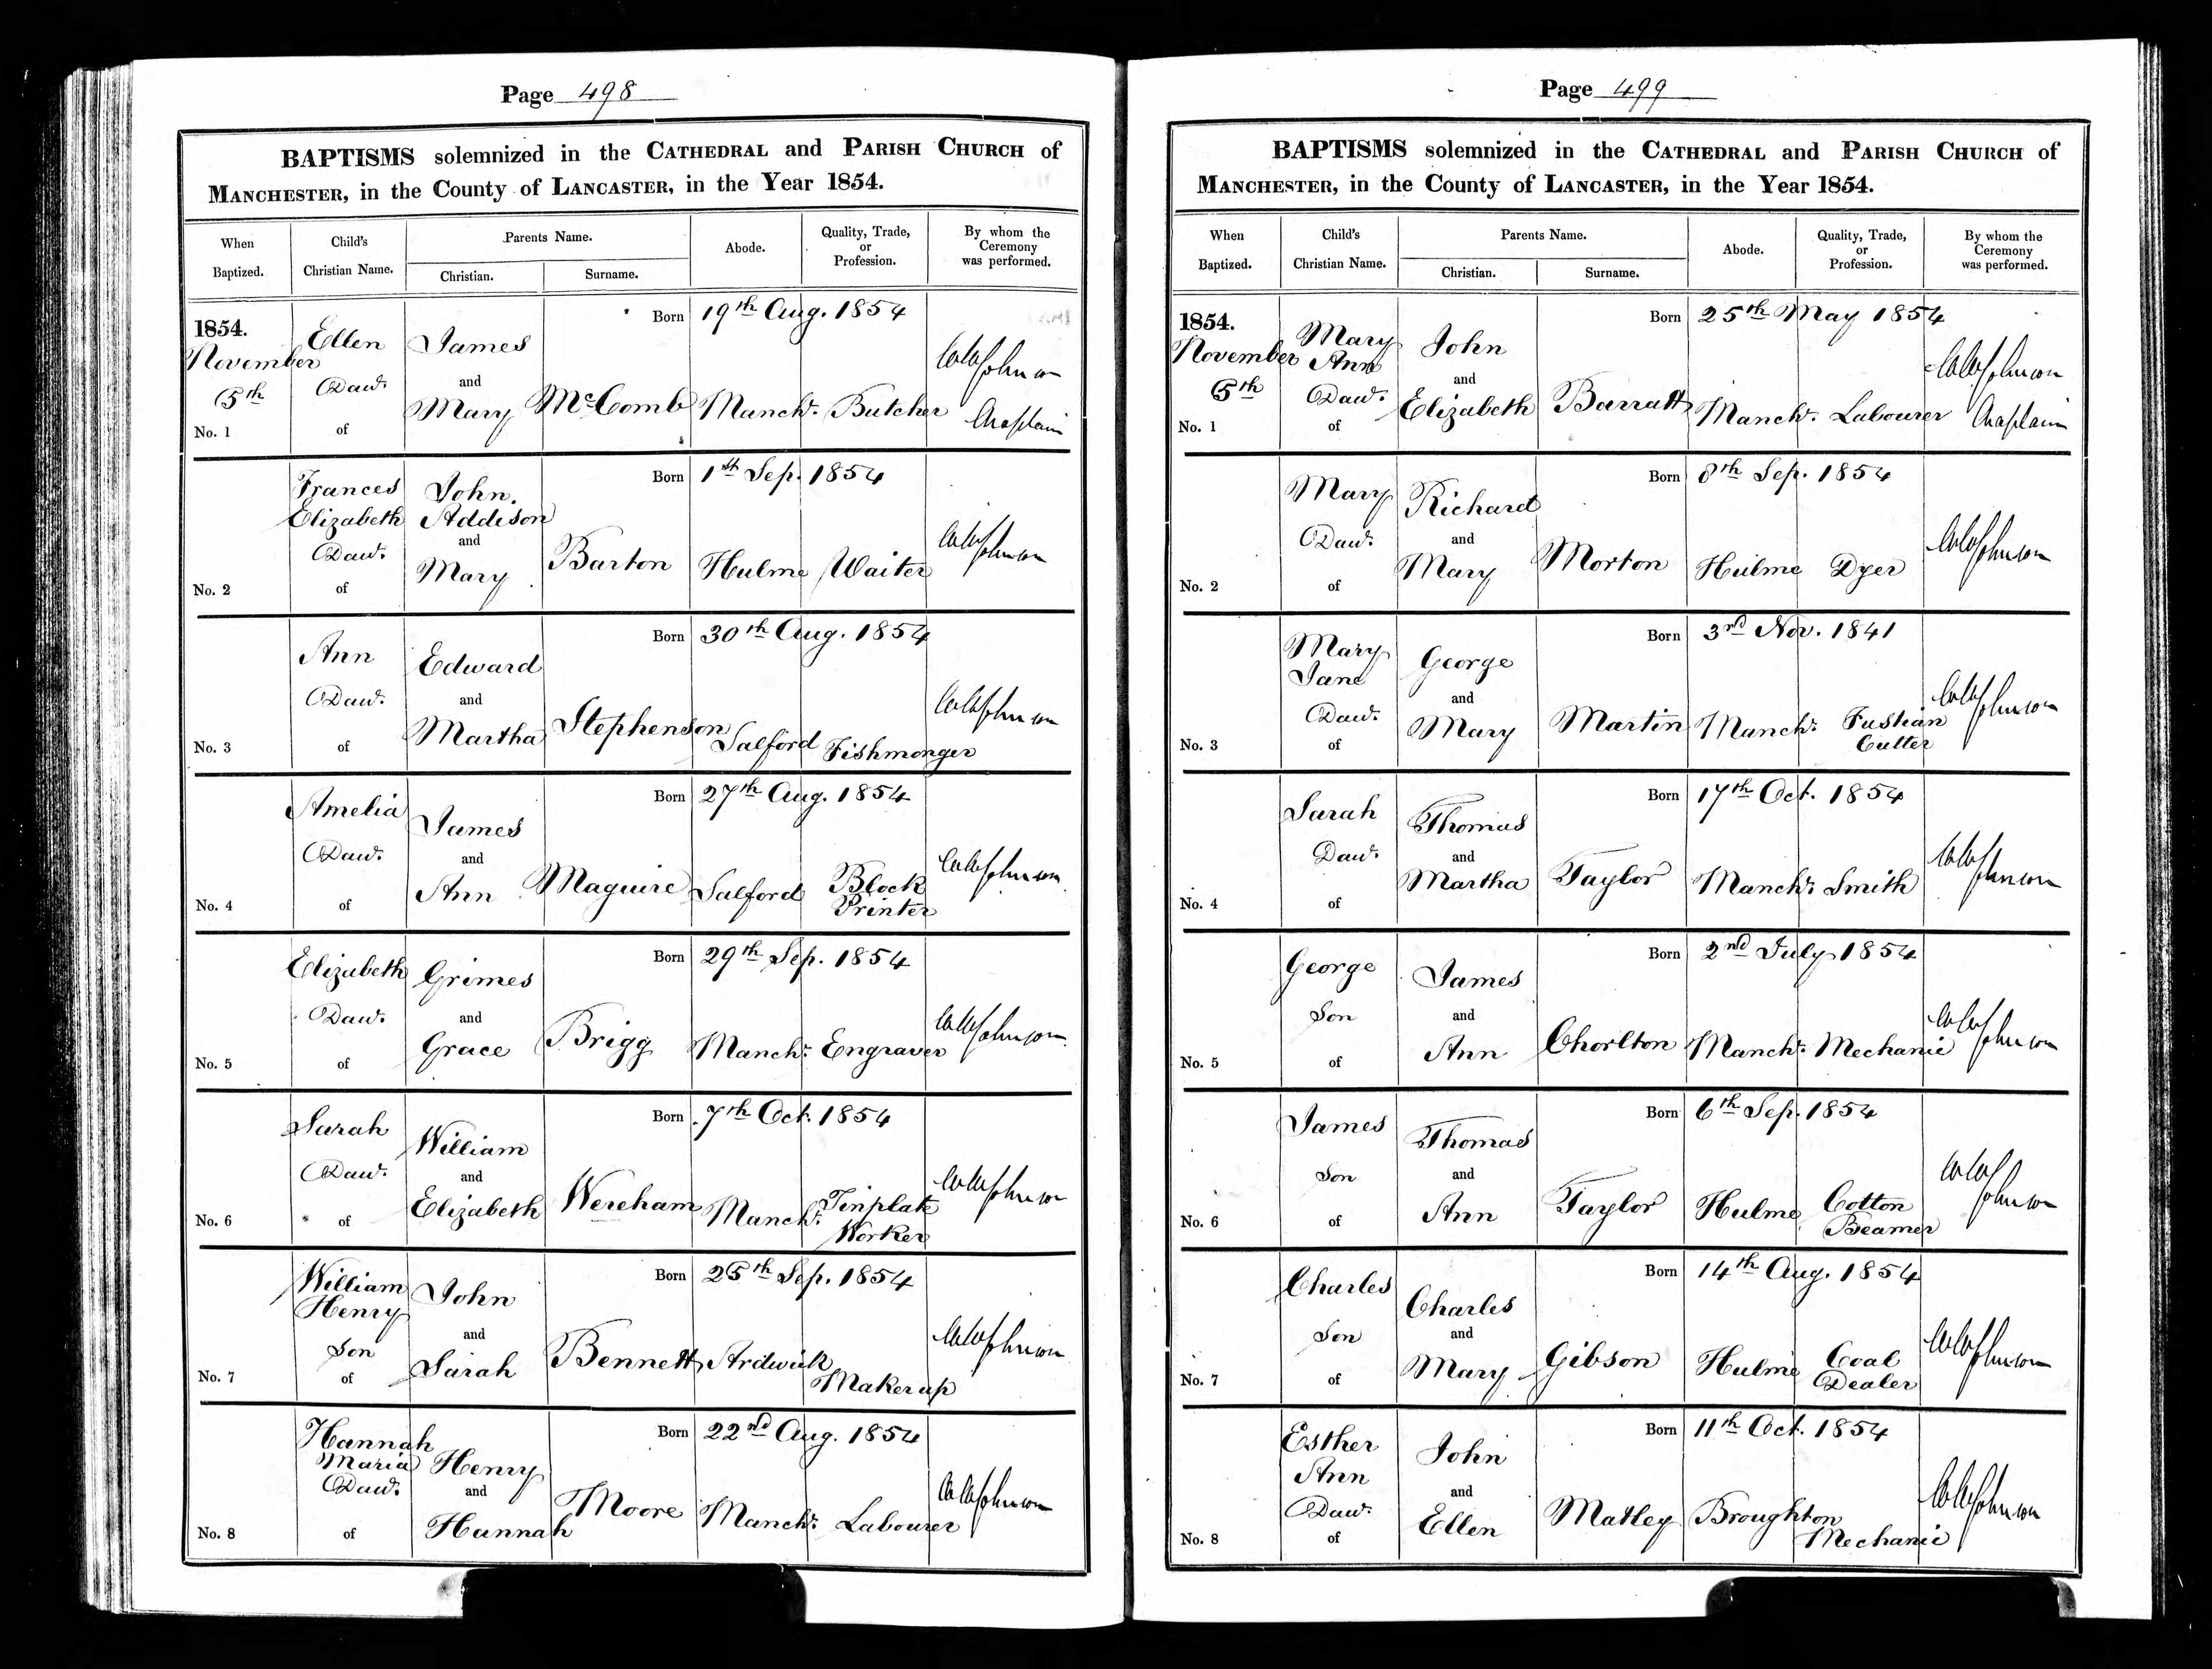 Page 498
BAPTISMS solemnized in the CATHEDRAL and PARISH CHURCH of
MANCHESTER, in the County of LANCASTER, in the Year 1854.
When Baptized. Child's Christian Name. Parents Name. Christian. Surname. Abode. Quality, Trade, or Profession. By whom the Ceremony was performed.
Born 19th Aug. 1854
1854. Ellen James
November
5th Daur. and Mary McComb Manchr. Butcher Johnson
No. 1 of Chaplain
Born 1st Sep. 1854
Frances John
Elizabeth Addison
Daur. and Barton Hulme Waiter Johnson
No. 2 of Mary
Born 30th Aug. 1854
Ann Edward
Daur. and Stephenson Johnson
No. 3 of Martha Salford Fishmonger
Born 27th Aug. 1854
Amelia James
Daur. and Maguire Salford Block Johnson
No. 4 of Ann Printer
Born 29th Sep. 1854
Elizabeth Grimes
Daur. and Brigg Manchr. Engraver Johnson
No. 5 of Grace
Born 7th Oct. 1854
Sarah William
Daur. and Wereham Manchr. Tinplate Johnson
No. 6 of Elizabeth Worker
Born 25th Sep. 1854
William John
Henry
Son and Bennett Ardwick Johnson
No. 7 of Sarah Maker up
Born 22nd Aug. 1854
Hannah
Maria Henry
Daur. and Moore Manchr. Labourer Johnson
No. 8 of Hannah
Page 499
BAPTISMS solemnized in the CATHEDRAL and PARISH CHURCH of
MANCHESTER, in the County of LANCASTER, in the Year 1854.
When Baptized. Child's Christian Name. Parents Name. Christian. Surname. Abode. Quality, Trade, or Profession. By whom the Ceremony was performed.
Born 25th May 1854
1854. Mary John
November Ann
5th Daur. and Elizabeth Barratt Manchr. Labourer Johnson
No. 1 of Chaplain
Born 8th Sep. 1854
Mary Richard
Daur. and Morton Hulme Dyer Johnson
No. 2 of Mary
Born 3rd Nov. 1841
Mary George
Jane
Daur. and Martin Manchr. Fustian Johnson
No. 3 of Mary Cutter
Born 17th Oct. 1854
Sarah Thomas
Daur. and Taylor Manchr. Smith Johnson
No. 4 of Martha
Born 2nd July 1854
George James
Son and Chorlton Manchr. Mechanic Johnson
No. 5 of Ann
Born 6th Sep. 1854
James Thomas
Son and Taylor Hulme Cotton Johnson
No. 6 of Ann Beamer
Born 14th Aug. 1854
Charles Charles
Son and Gibson Hulme Coal Johnson
No. 7 of Mary Dealer
Born 11th Oct. 1854
Esther John
Ann
Daur. and Matley Broughton Johnson
No. 8 of Ellen Mechanic